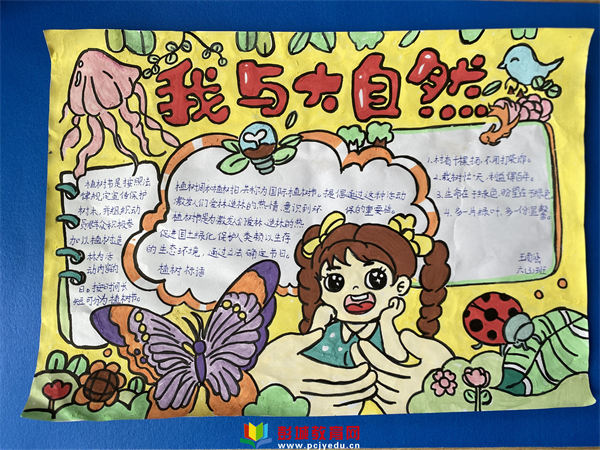 我与大自然
植树节是按照法
律规定宣传保护
树木,并组织动
员群众积极参
加以植树造
林为活
动内容的
节日。按时间长
短可分为植树节。
植树周和植树月,共称为国际植树节。提倡通过这种活动
激发人们爱林造林的热情、意识到环
体的重要性。
植树节是为激发人们爱林、造林的热
促进国土绿化,保护人类赖以生存
的生态环境,通过立法确定节日。
植树标语
2.栽树忙一天,利益得百年。
4.多一片绿叶,多一份温馨。
六(3)班
彭城教育网
www.pcjyedu.cn